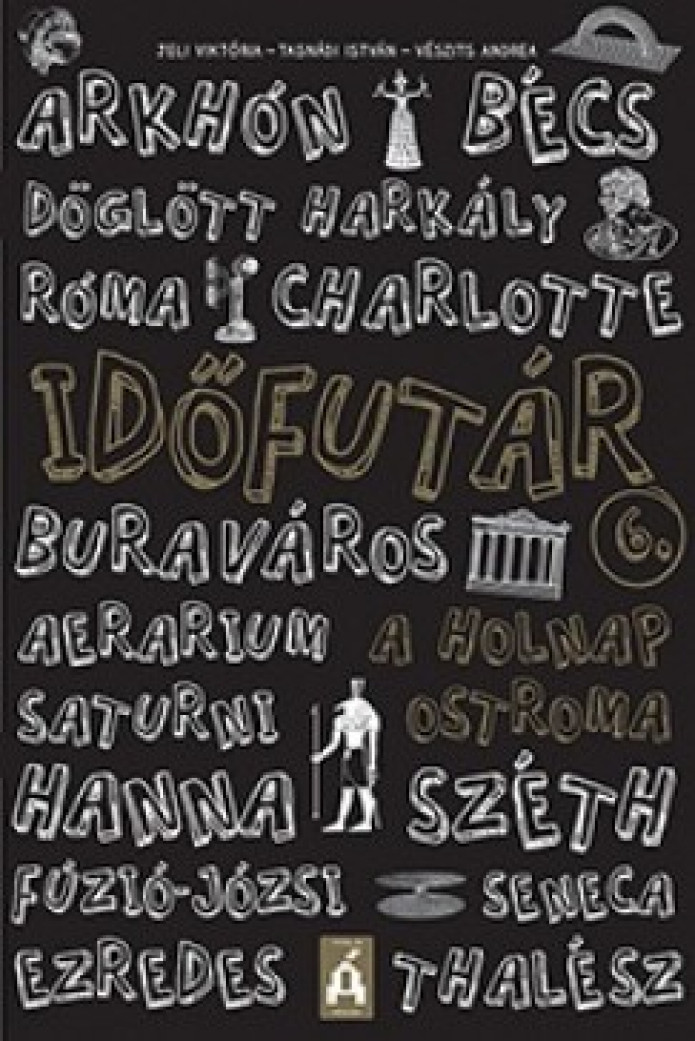 JELI VIKTÓRIA – TASNÁDI ISTVÁN – VÉSZITS ANDREA
ARKHÓN BÉCS
DÖGLÖTT HARKÁLY
RÓMA CHARLOTTE
IDŐFUTÁR
6.
BURAVÁROS
AERARIUM
A HOLNAP
SATURNI
OSTROMA
HANNA SZÉTH
FÚZIÓ-JÓZSI SENECA
EZREDES Á THALÉSZ